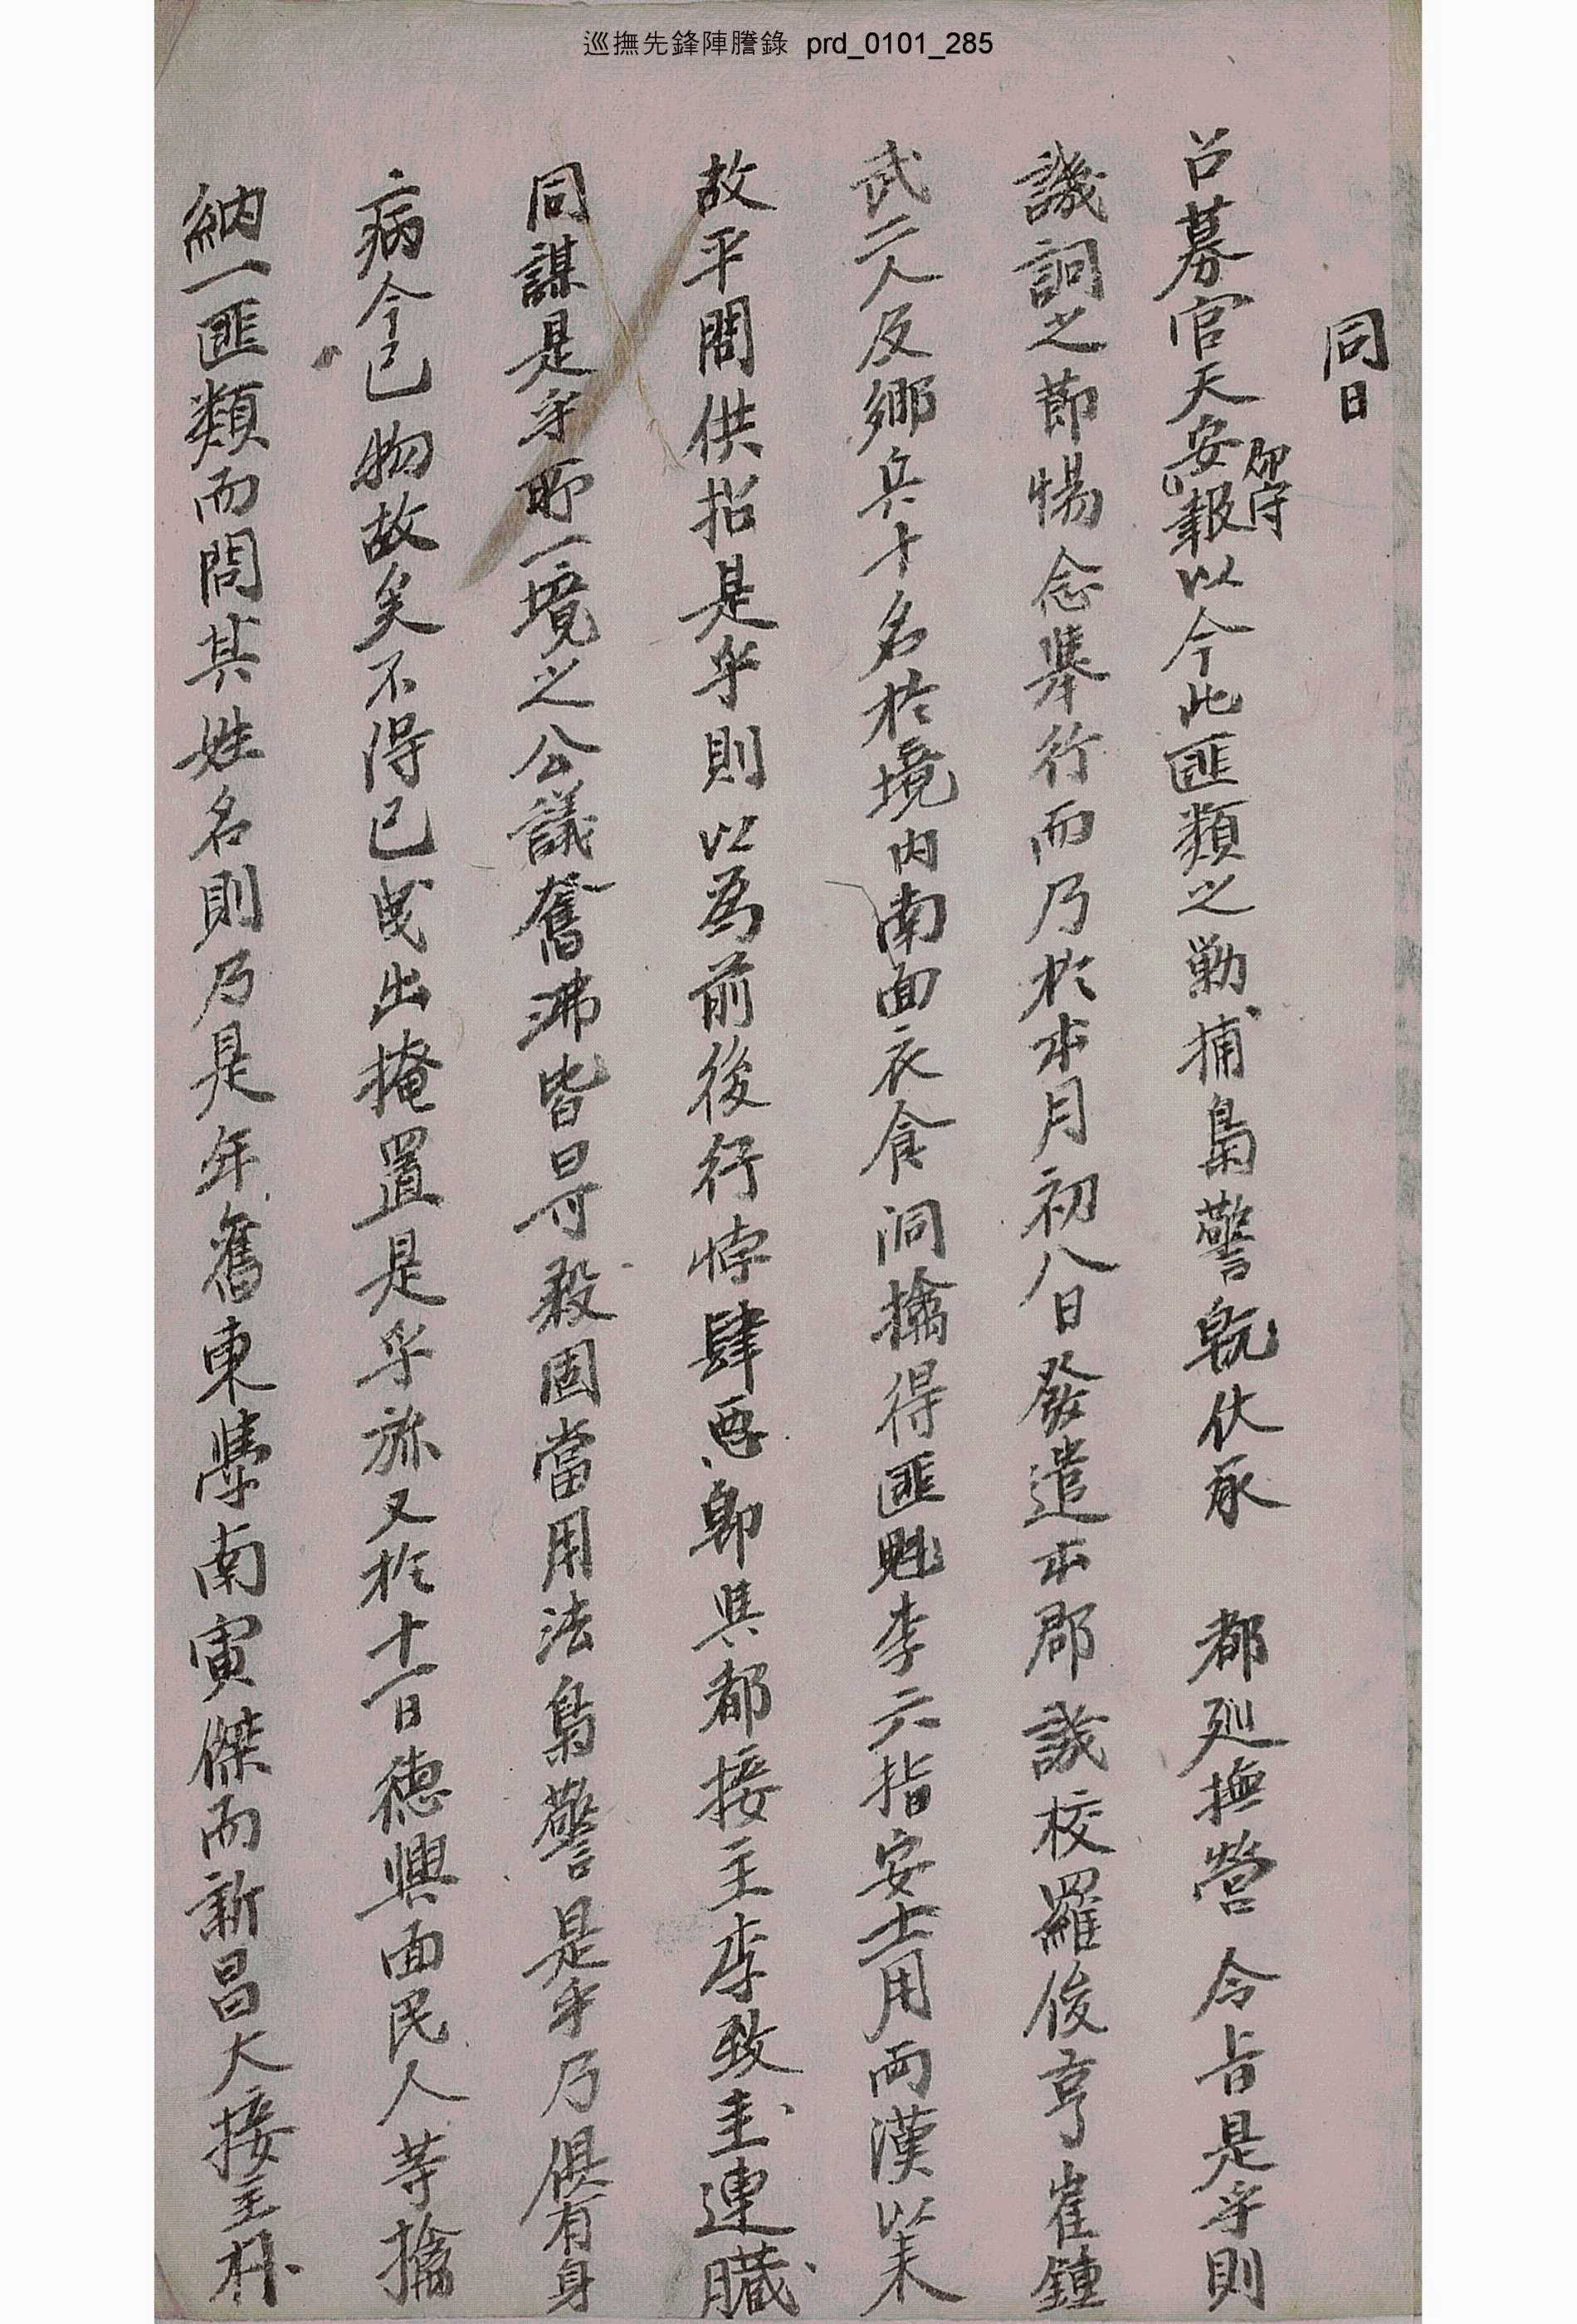 巡撫先鋒陣謄錄 prd_0101_285
同日
召募官天安郡守報以今此匪類之勦捕梟警旣伏承 都巡撫營 令旨是乎則
譏詗之節惕念擧行而乃於本月初八日發遣本郡譏校羅俊亨崔鍾
武二人及鄕兵十名於境內南面衣食洞擒得匪魁李六指安士用兩漢以來
故平問供招是乎則以爲前後行悖肆惡卽與都接主李致圭連臟
同謀是乎所一境之公議奮沸皆曰可殺固當用法梟警是乎乃俱有身
病今已物故矣不得已曳出掩置是乎旀又於十一日德興面民人等擒
納一匪類而問其姓名則乃是年舊東學南寅傑而新昌大接主朴